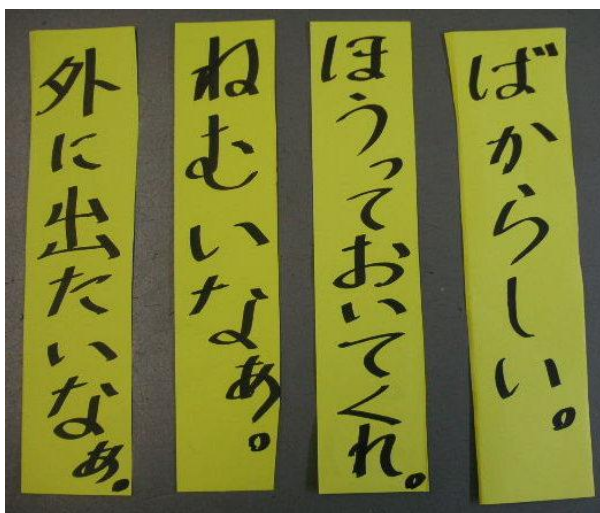 ばからしい。
ほうっておいてくれ。
ねむいなぁ。
外に出たいなぁ。